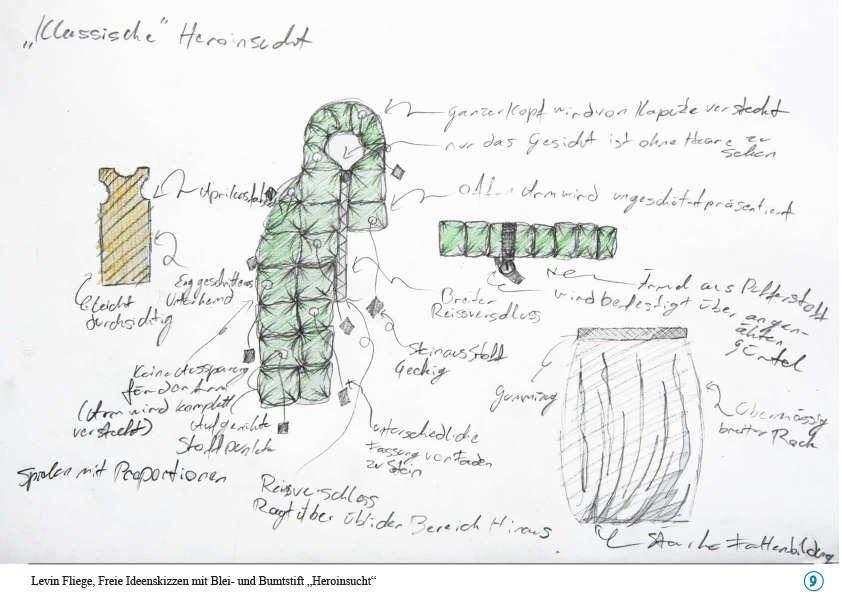 „Klassische“ Heroinsucht
ganzer Kopf wird von Kapuze versteckt
nur das Gesicht ist ohne Haare zu
sehen
Arm wird ungeschützt präsentiert
Eng geschnittenes
Unterhemd
leicht
durchsichtig
Breiter
Reissverschluss
Ärmel aus Pufferstoff
wird befestigt über angen-
ähten
Gürtel
Stein aus Stoff
Gummizug
Keine Aussparung
für den Arm
(Arm wird komplett
versteckt)
Aufgenähte
Stoffpunkte
unterschiedliche
Fassung von Faden
zu Stein
Übermässig
breiter Rock
Spielen mit Proportionen
Reissverschloss
Ragt über üblichen Bereich Hinaus
Starke Faltenbildung
Levin Fliege, Freie Ideenskizzen mit Blei- und Bumtstift „Heroinsucht“
9